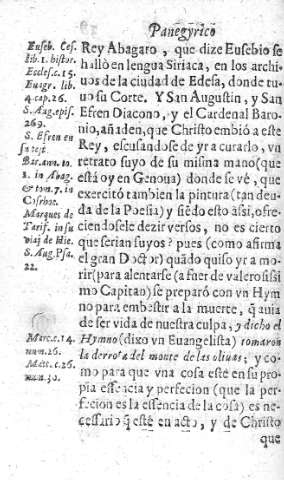 Panegyrico
Euseb. Ces.
lib. 1. histor.
Eccles. c. 15.
Euagr. lib.
4. cap. 26.
S. Aug. epis.
269.
S. Efren en
su test.
Bar. ann. to.
1. in Abag.
& tom. 7. in
Cosrhoe.
Marques de
Tarif. in su
viaj de Hie.
S. Aug. Psa.
22.
Marc. c. 14.
num. 26.
Matt. c. 26.
nun. 30.
Rey Abagaro, que dize Eusebio se
hallò en lengua Siriaca, en los archi-
uos de la ciudad de Edesa, donde tu-
uo su Corte. Y San Augustin, y San
Efren Diacono, y el Cardenal Baro-
nio, añaden, que Christo embiò a este
Rey, escusandose de yr a curarlo, vn
retrato suyo de su misma mano (que
està oy en Genoua) donde se vè, que
exercitò tambien la pintura (tan deu-
da de la Poesia) y siẽdo esto assi, ofre-
ciendosele dezir versos, no es cierto
que serian suyos? pues (como afirma
el gran Doctor) quãdo quiso yr a mo-
rir (para alentarse (a fuer de valerosissi
mo Capitan) se preparò con vn Hym
no para embestir a la muerte, q̃ auia
de ser vida de nuestra culpa, y dicho el
Hymno (dixo vn Euangelista) tomaron
la derrota del monte de las oliuas; y co-
mo para que vna cosa estè en su pro-
pia essencia y perfecion (que la per-
fecion es la essencia de la cosa) es ne-
cessario q̃ estè en acto, y de Christo
que